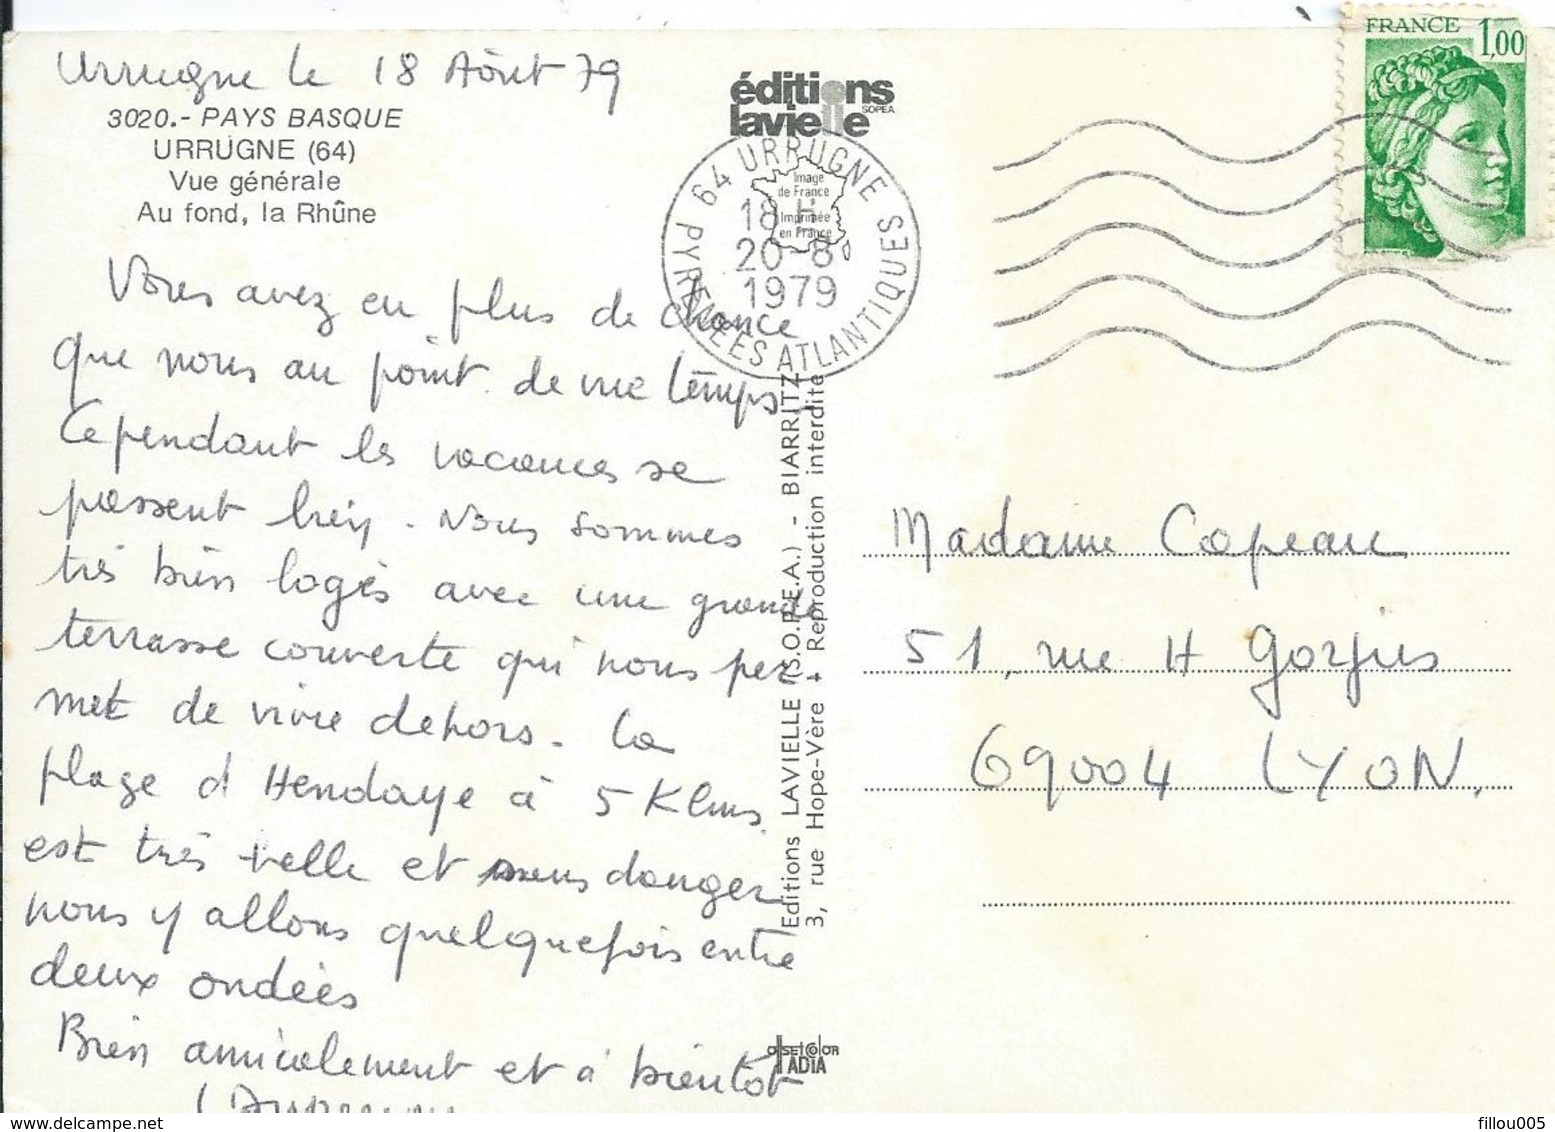 Urrugne le 18 Août 79
3020.- PAYS BASQUE
URRUGNE (64)
Vue générale
Au fond, la Rhûne
Vous avez eu plus de chance
que nous au point de vue temps.
Cependant les vacances se
passent bien. Nous sommes
très bien logés avec une grande
terrasse couverte qui nous per
met de vivre dehors. La
plage d Hendaye à 5 Klms
est très belle et sans danger
nous y allons quelquefois entre
deux ondées
Bien amicalement et à bientôt
éditions
lavielle
SOPEA
Image
de France
Imprimée
en France
64 URRUGNE
18 H
20-8
1979
PYRENEES ATLANTIQUES
Editions LAVIELLE (S.O.P.E.A.) - BIARRITZ
3, rue Hope-Vère + Reproduction interdite
offset color
IADIA
FRANCE 1,00
Madame Capeau
51, rue H Gorjus
69004 LYON.
fillou005